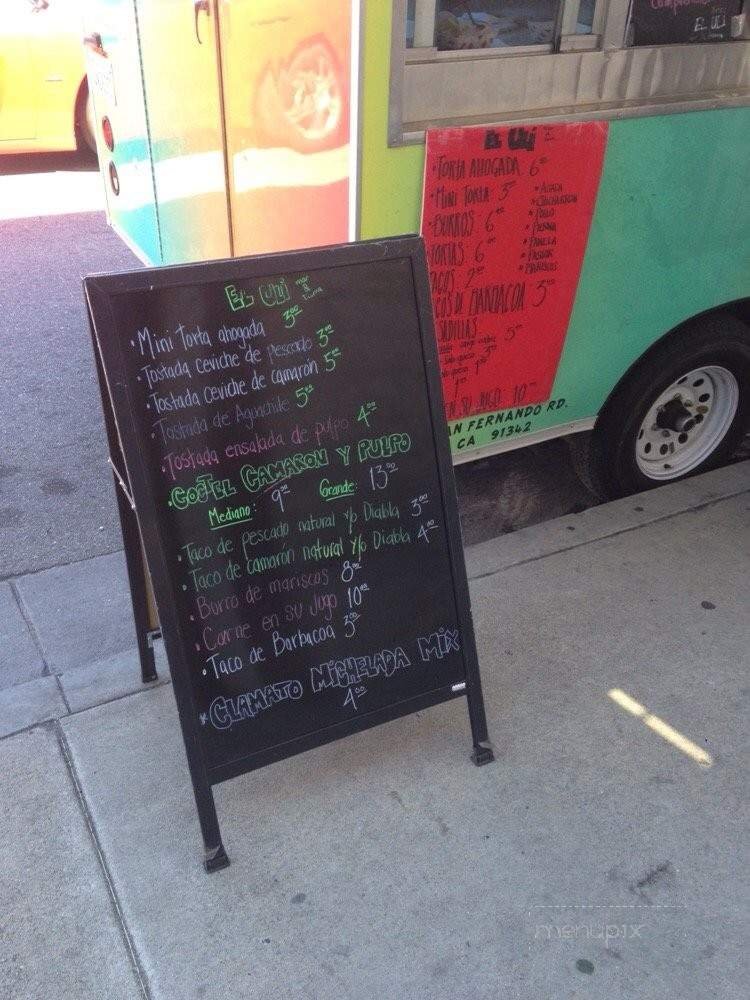 EL ULi mar & tierra
• Mini torta ahogada 3⁰⁰
• Tostada ceviche de Pescado 3⁰⁰
• Tostada ceviche de camarón 5⁰⁰
• Tostada de Aguachile 5⁰⁰
• Tostada ensalada de pulpo 4⁰⁰
• COCTEL CAMARON Y PULPO
Mediano: 9⁰⁰ Grande: 13⁰⁰
• Taco de pescado natural y/o Diabla 3⁰⁰
• Taco de camarón natural y/o Diabla 4⁰⁰
• Burro de mariscos 8⁰⁰
• Carne en su Jugo 10⁰⁰
• Taco de Barbacoa 3⁰⁰
* CLAMATO MICHELADA MIX
4⁰⁰
EL ULi
• TORTA AHOGADA 6⁰⁰
• MINI TORTA 3⁰⁰
• BURROS 6⁰⁰
TORTAS 6⁰⁰
ACOS 2⁰⁰
COS DE BARBACOA 3⁰⁰
SADILLAS
5⁰⁰
3⁰⁰
1⁵⁰
EN SU JUGO 10⁰⁰
• ASADA
• CHICHARRON
• POLLO
• PIERNA
• PANELA
• PASTOR
• MARISCOS
AN FERNANDO RD.
CA 91342
EL ULi
menupix